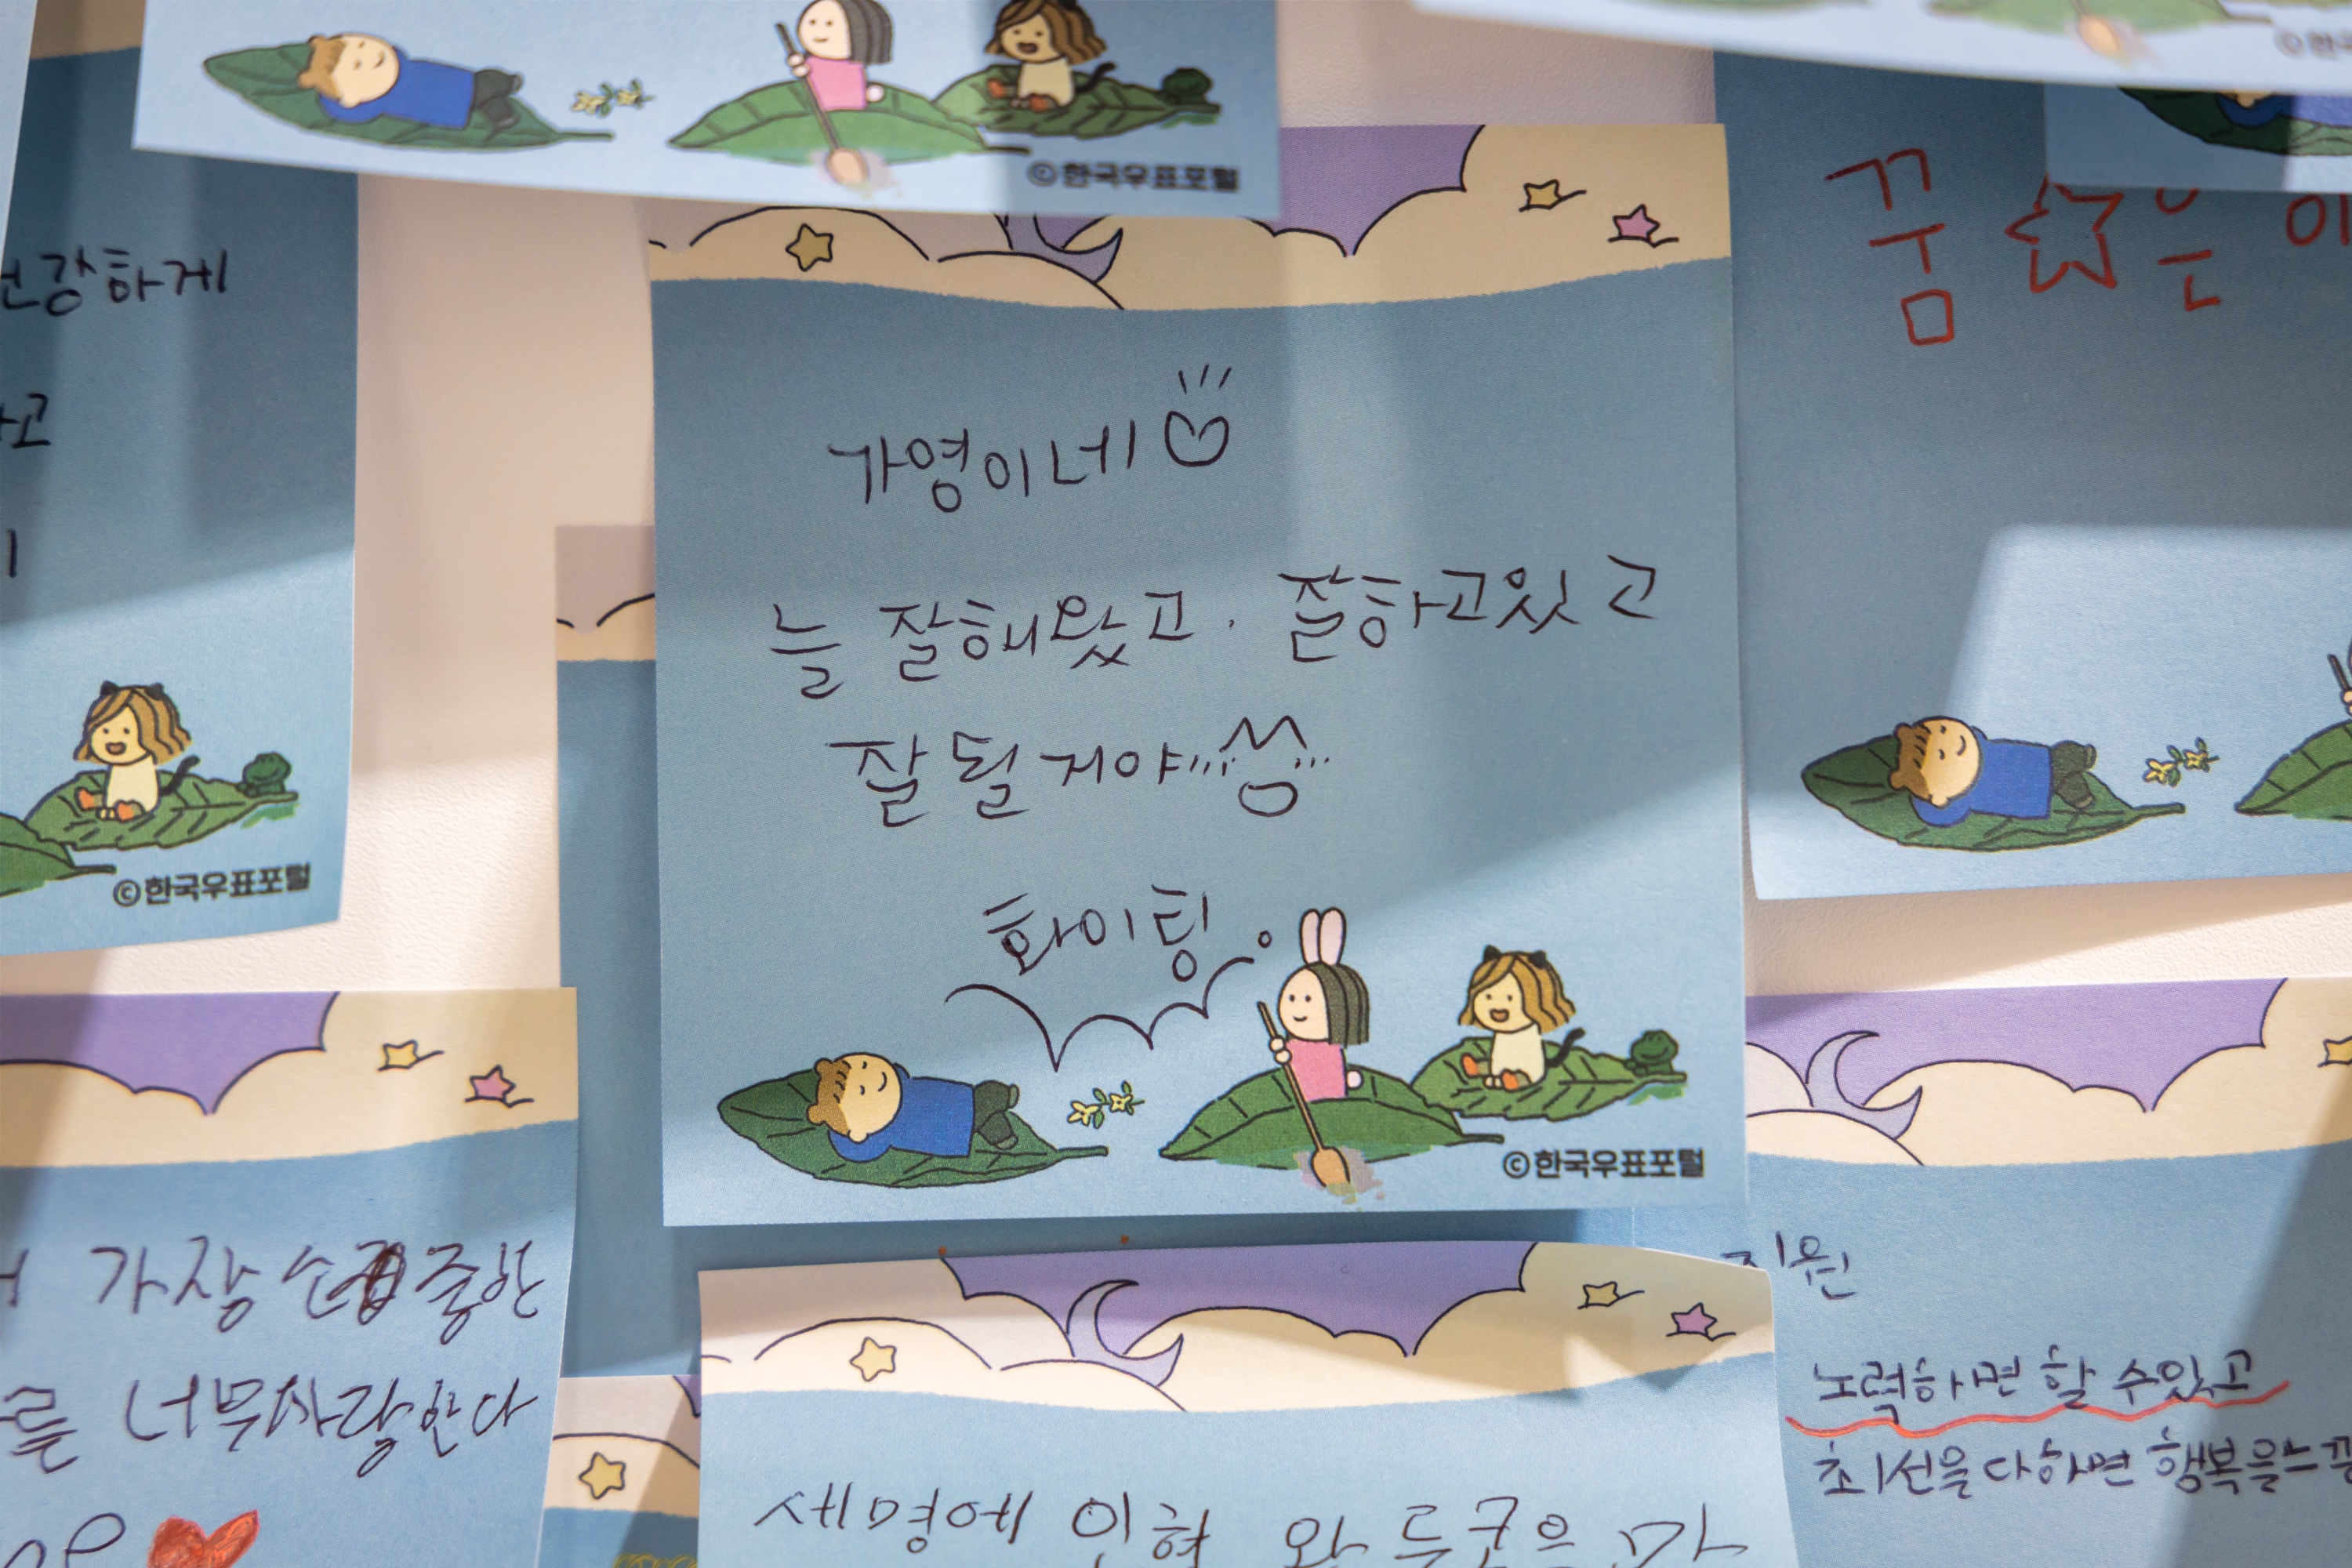 ©한국우표포털
건강하게
고
©한국우표포털
꿈 은 이
가영이네
늘 잘해왔고. 잘하고있고
잘 될 거야
화이팅
©한국우표포털
가장 소중한
를 너무사랑한다
지원
노력하면 할 수있고
최선을다하면 행복을느낄
세명에 인형 와